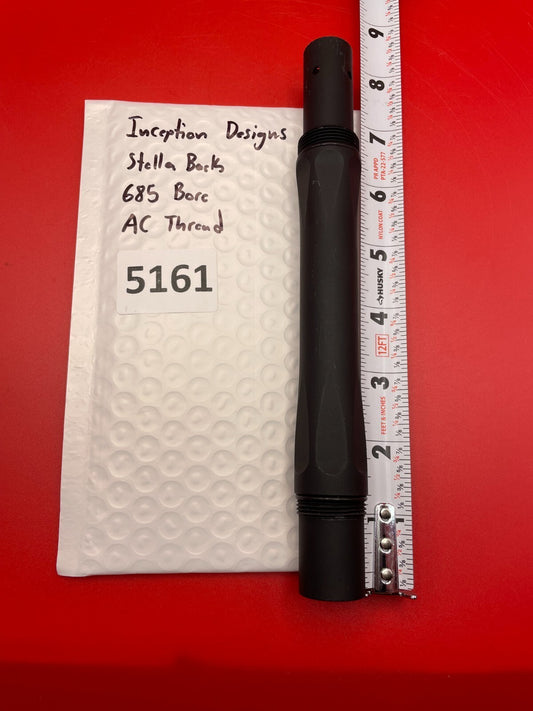 Inception Designs
Stella Back
685 Bore
AC Thread
5161
9
8
7
PR APPD
PTA-22-577
6
NYLON COAT
5
HUSKY
4
12FT
3
FEET & INCHES
2
1